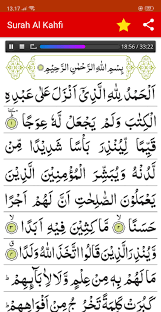 13.17
Surah Al Kahfi
18:56 / 33:22
بِسْمِ اللّٰهِ الرَّحْمٰنِ الرَّحِيْمِ
اَلْحَمْدُ لِلّٰهِ الَّذِيْٓ اَنْزَلَ عَلٰى عَبْدِهِ
الْكِتٰبَ وَلَمْ يَجْعَلْ لَّهٗ عِوَجًا
قَيِّمًا لِّيُنْذِرَ بَأْسًا شَدِيْدًا مِّنْ
لَّدُنْهُ وَيُبَشِّرَ الْمُؤْمِنِيْنَ الَّذِيْنَ
يَعْمَلُوْنَ الصّٰلِحٰتِ اَنَّ لَهُمْ اَجْرًا
حَسَنًا مَّاكِثِيْنَ فِيْهِ اَبَدًا
وَّيُنْذِرَ الَّذِيْنَ قَالُوا اتَّخَذَ اللّٰهُ وَلَدًا
مَا لَهُمْ بِهٖ مِنْ عِلْمٍ وَّلَا لِاٰبَآئِهِمْ
كَبُرَتْ كَلِمَةً تَخْرُجُ مِنْ اَفْوَاهِهِمْ